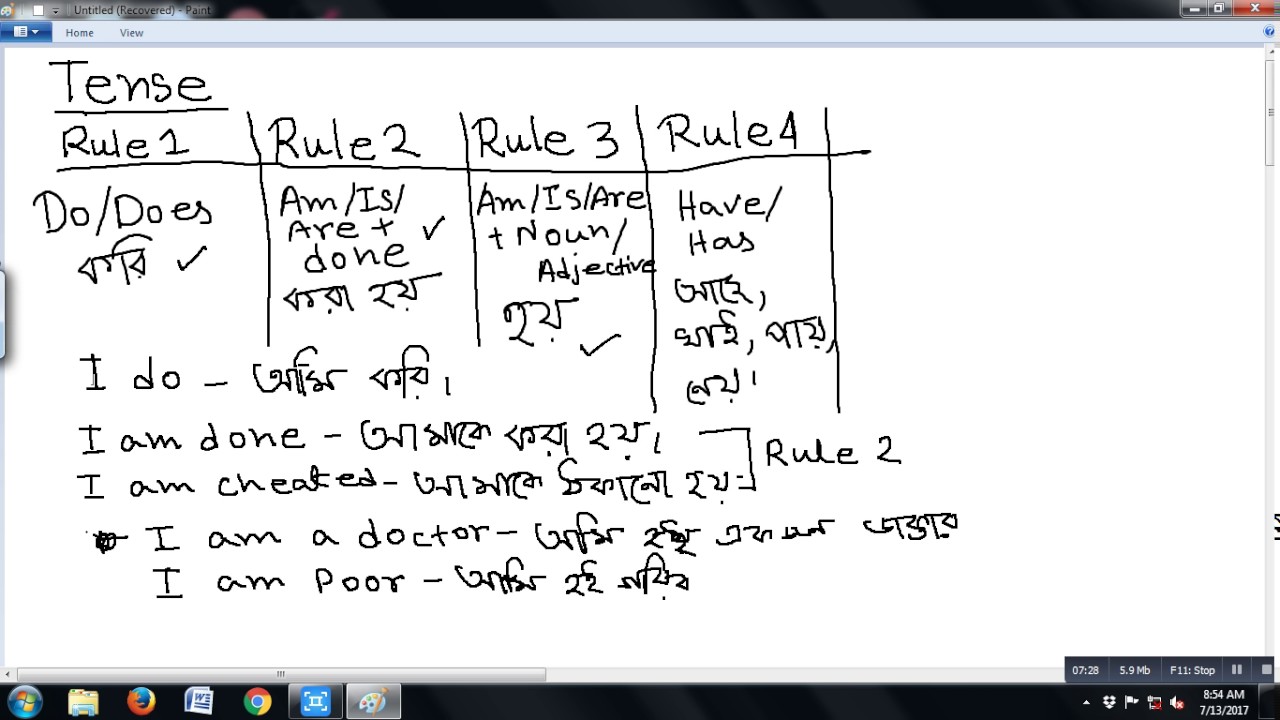 Untitled (Recovered) - Paint
Home View
Tense
Rule 1 Rule 2 Rule 3 Rule 4
Do/Does
করি
Am/Is/
Are +
done
করা হয়
Am/Is/Are
+ Noun/
Adjective
হয়
Have/
Has
আছে,
খাই, পায়,
নেয়।
I do - আমি করি।
I am done - আমাকে করা হয়।
I am cheated - আমাকে ঠকানো হয়
Rule 2
I am a doctor - আমি হই একজন ডাক্তার
I am Poor - আমি হই গরিব
07:28 5.9 Mb F11: Stop
8:54 AM
7/13/2017